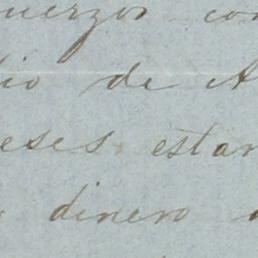 uerzos con
io de A
eses estan
dinero